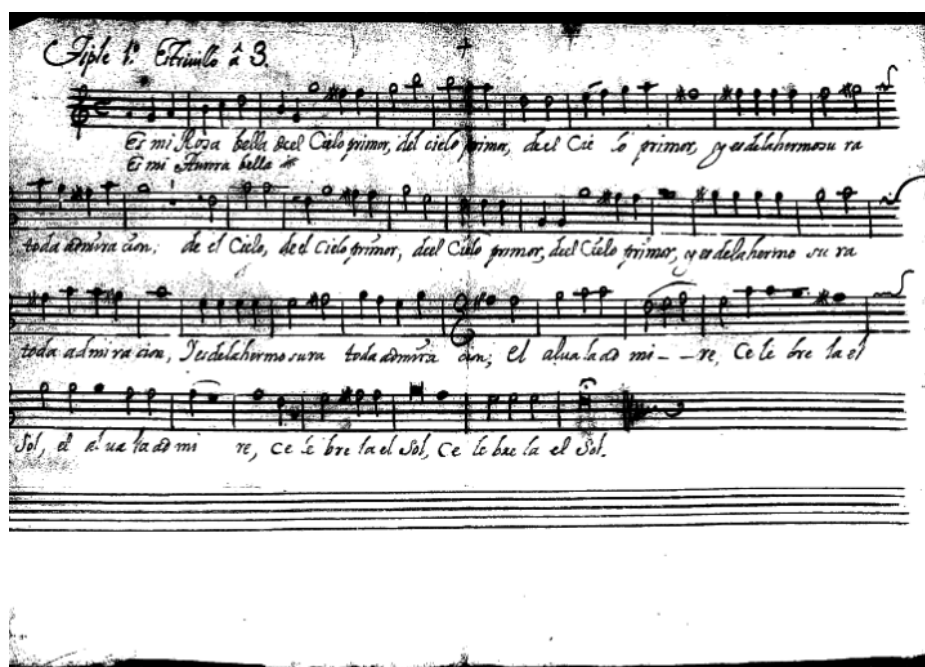 Tiple 1º Estrivillo â 3.
Es mi Rosa bella de el Cielo primor, del cielo primor, de el Cie lo primor, y es de la hermosu ra
Es mi Aurora bella
toda admira cion; de el Cielo, de el Cielo primor, de el Cielo primor, de el Cielo primor, y es de la hermo su ra
toda admi ra cion, Y es de la hermo sura toda admira cion; el alua la ad mi - - re, Ce le bre la el
Sol, el alua la ad mi re, ce le bre la el Sol, Ce le bre la el Sol.